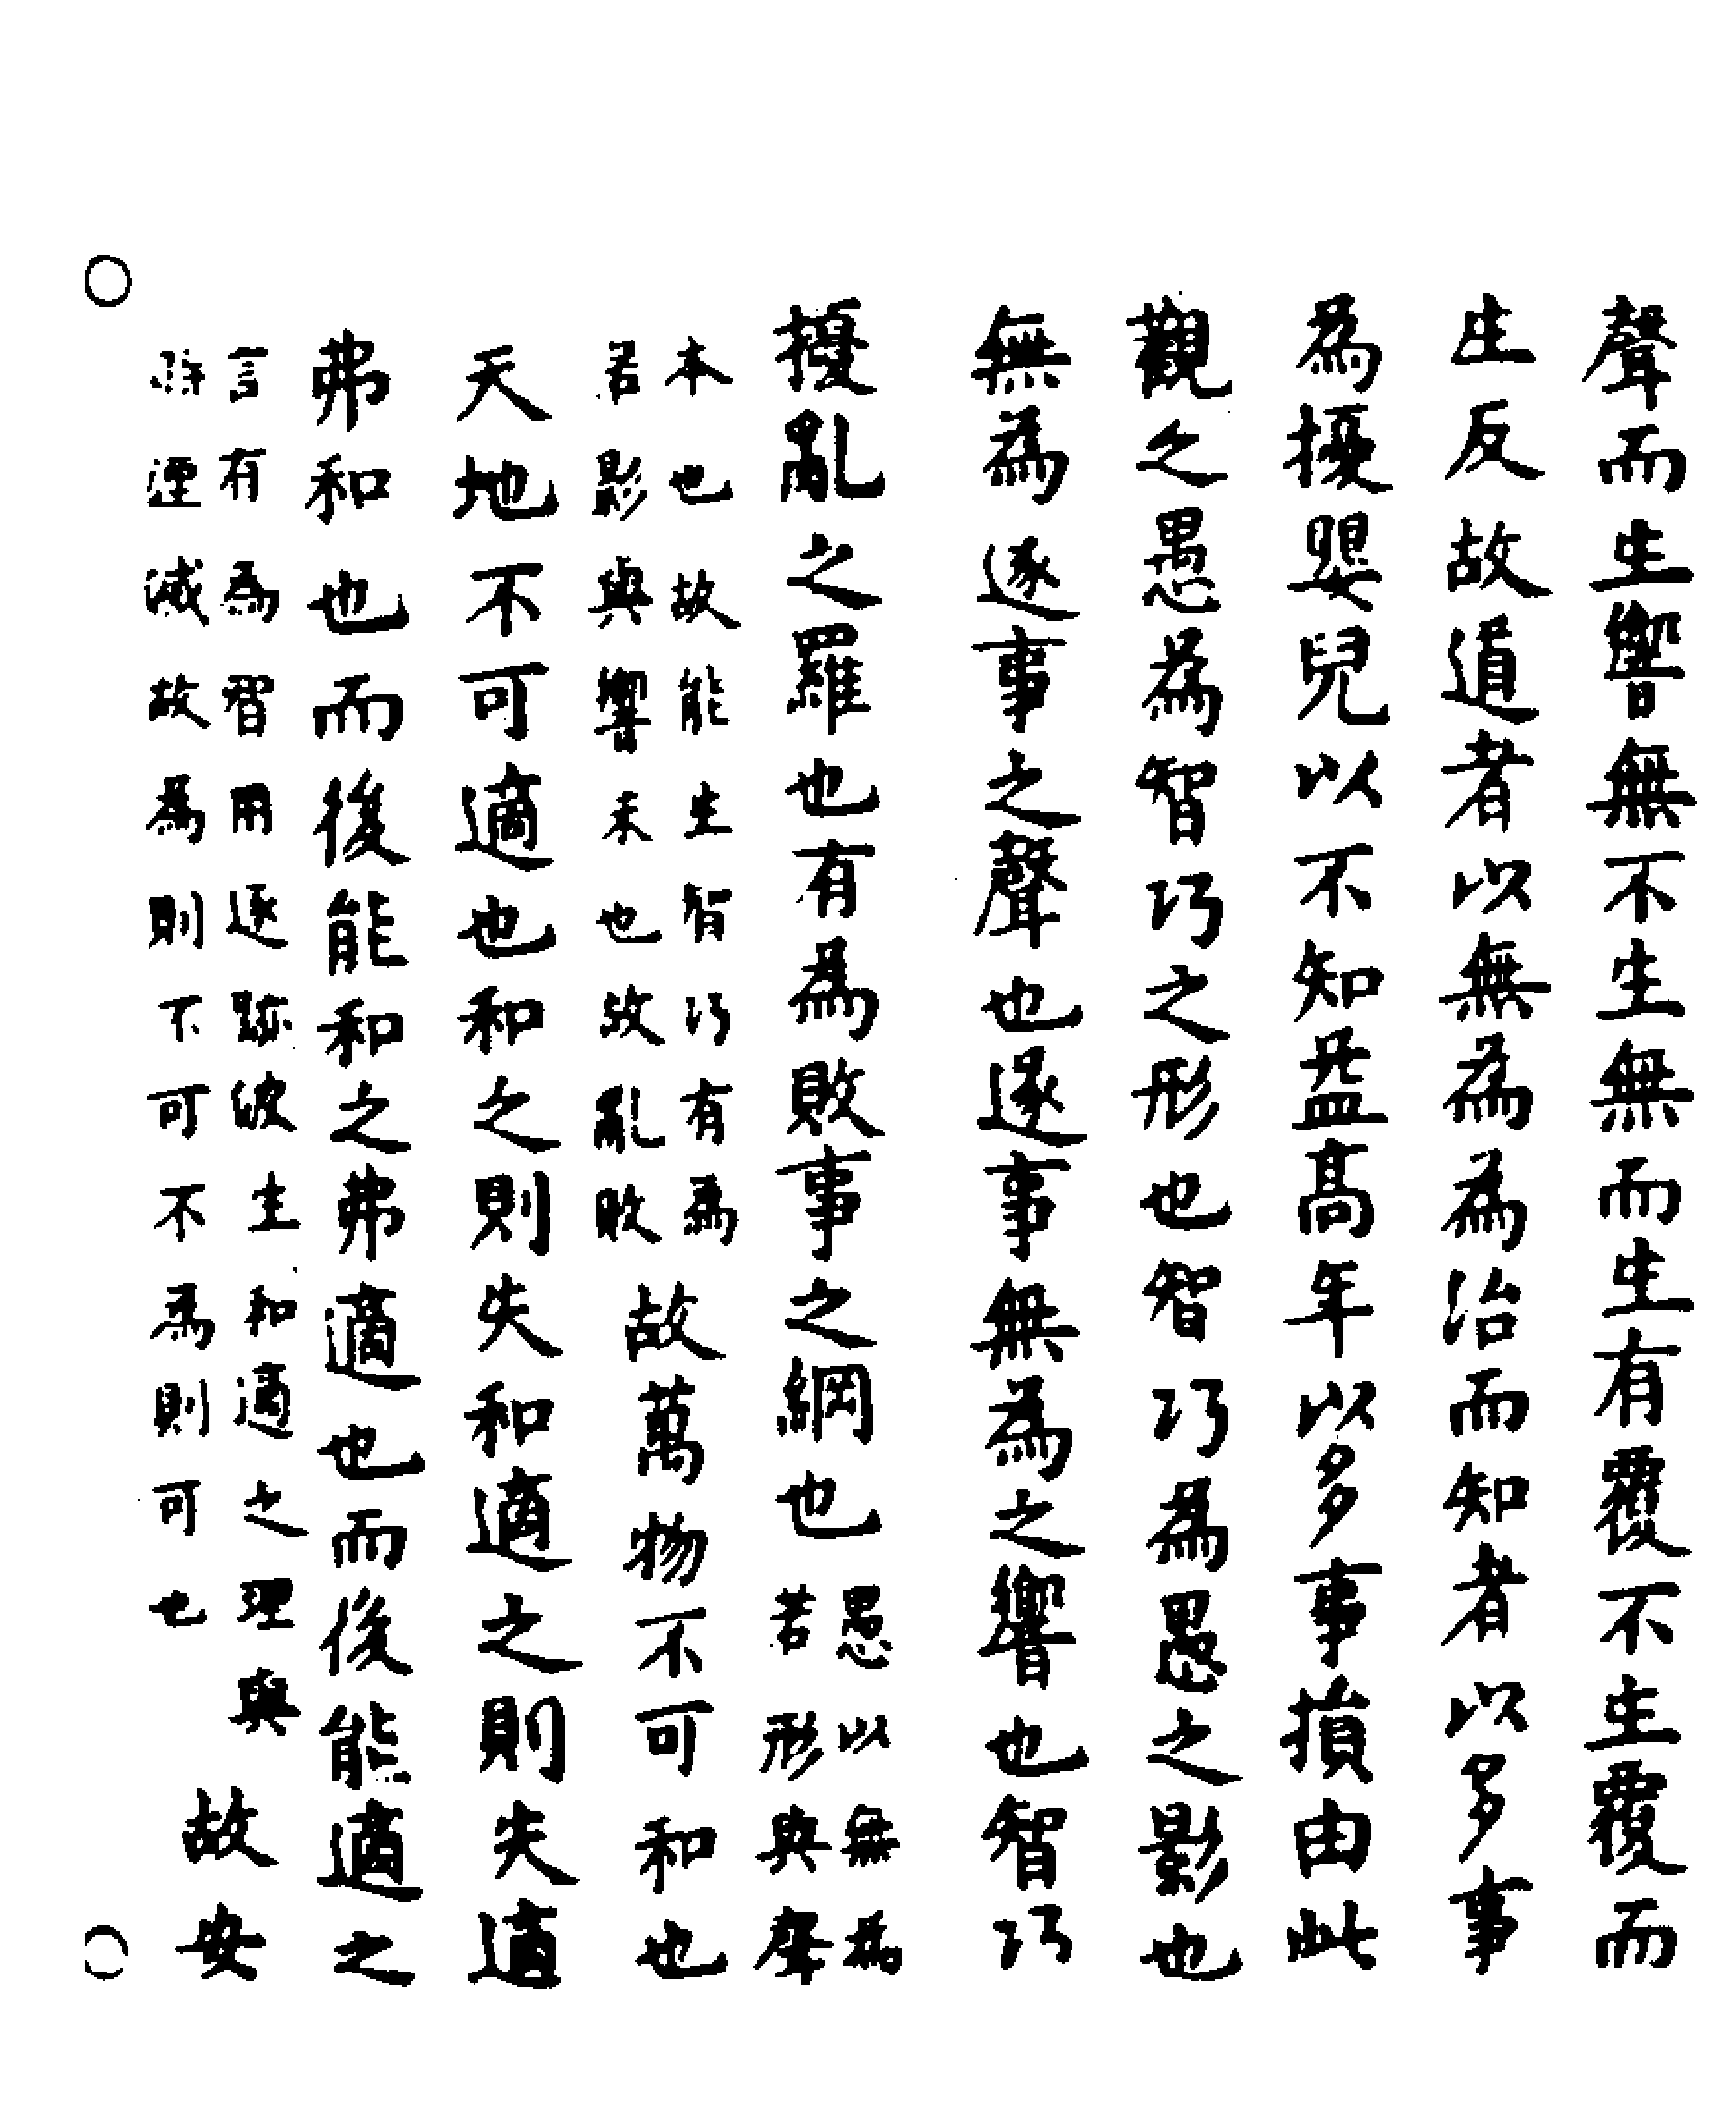 聲而生響無不生無而生有覆不生覆而
生反故道者以無為為治而知者以多事
為擾嬰兒以不知益高年以多事損由此
觀之愚為智巧之形也智巧為愚之影也
無為遂事之聲也遂事無為之響也智巧
擾亂之羅也有為敗事之綱也愚以無為
若形與聲
本也故能生智巧有為
若影與響末也故亂敗
故萬物不可和也
天地不可適也和之則失和適之則失適
弗和也而後能和之弗適也而後能適之
言有為智用逐跡彼生和適之理與
湮滅故為則不可不為則可也
故安